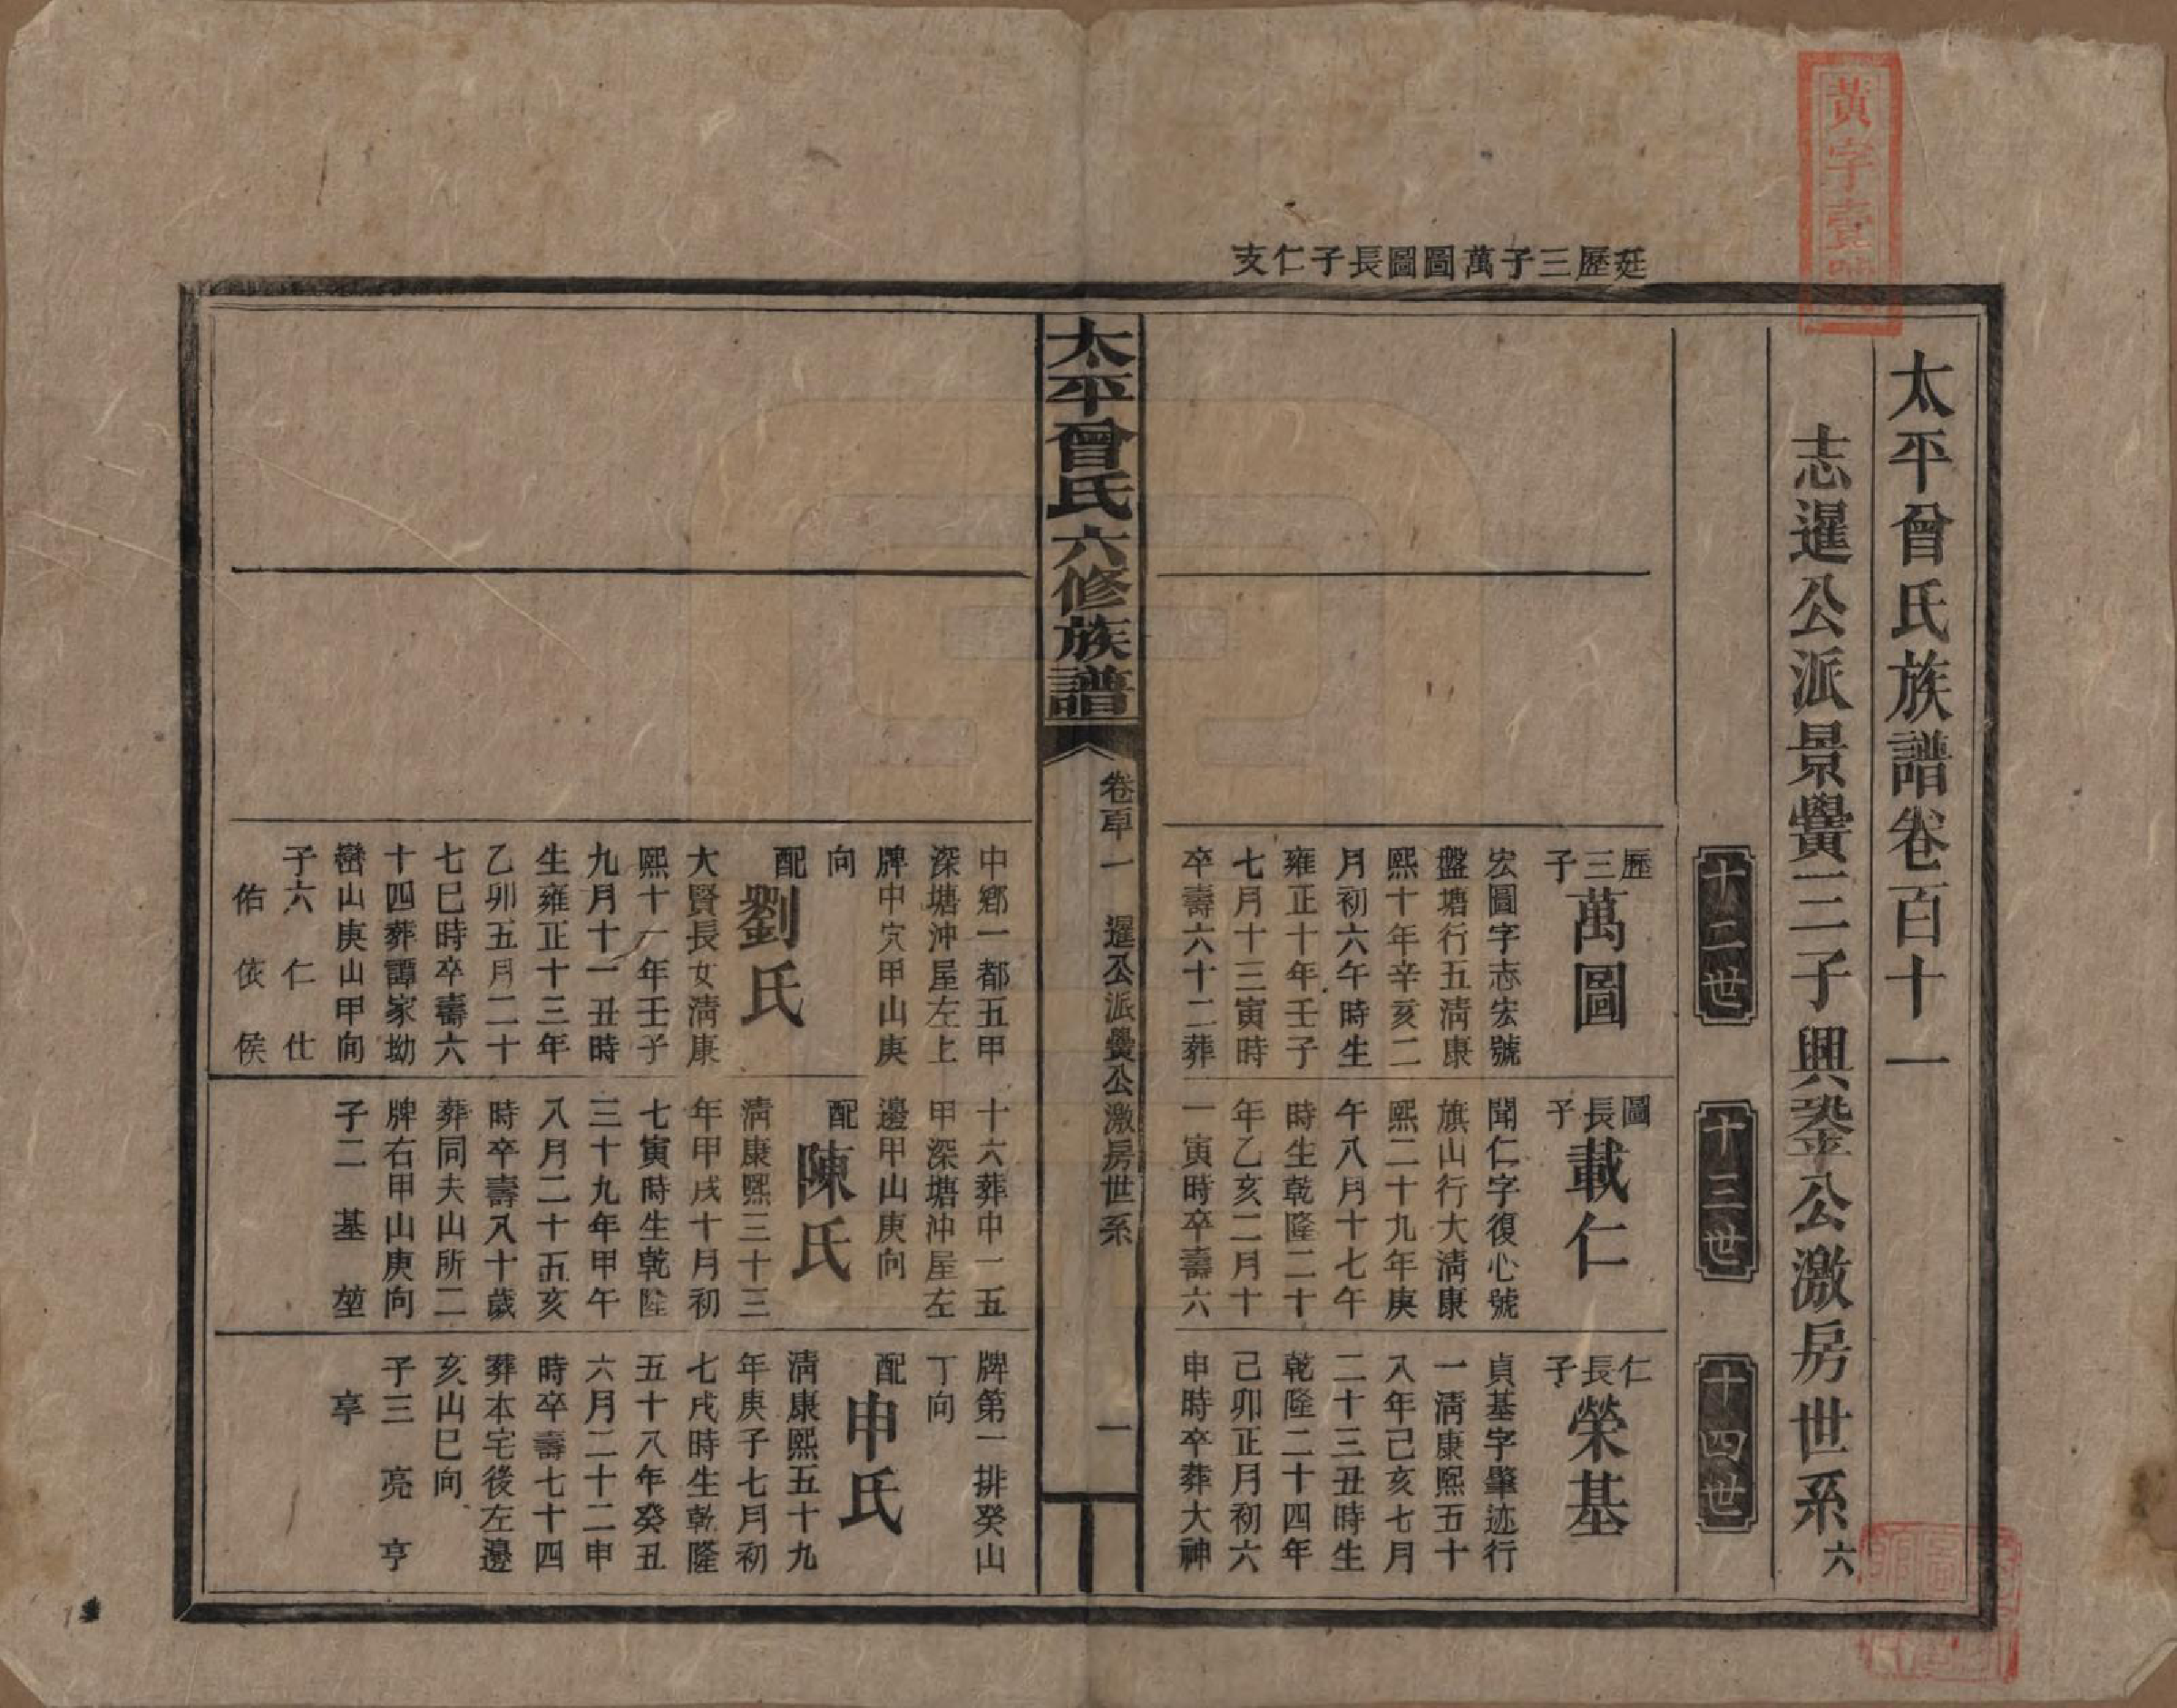 黃字壹號
廷歷三子萬圖圖長子仁支
太平曾氏族譜卷百十一
志暹公派景黌三子興公激房世系六
十二世
十三世
十四世
歷三子
萬圖
宏圖字志宏號
盤塘行五清康
熙十年辛亥二
月初六午時生
雍正十年壬子
七月十三寅時
卒壽六十二葬
中鄉一都五甲
深塘沖屋左上
牌中穴甲山庚
向
配
劉氏
大賢長女清康
熙十一年壬子
九月十一丑時
生雍正十三年
乙卯五月二十
七巳時卒壽六
十四葬譚家坳
巒山庚山甲向
子六 仁 仕
佑 依 侯
圖長子
載仁
聞仁字復心號
旗山行大清康
熙二十九年庚
午八月十七午
時生乾隆二十
年乙亥二月十
一寅時卒壽六
十六葬中一五
甲深塘沖屋左
邊甲山庚向
配
陳氏
清康熙三十三
年甲戌十月初
七寅時生乾隆
三十九年甲午
八月二十五亥
時卒壽八十歲
葬同夫山所二
牌右甲山庚向
子二 基 堃
仁長子
榮基
貞基字肇迹行
一清康熙五十
八年己亥七月
二十三丑時生
乾隆二十四年
己卯正月初六
申時卒葬大神
牌第一排癸山
丁向
配
申氏
清康熙五十九
年庚子七月初
七戌時生乾隆
五十八年癸丑
六月二十二申
時卒壽七十四
葬本宅後左邊
亥山巳向
子三 亮 亨
享
太平曾氏六修族譜
卷百十一
暹公派黌公激房世系
一